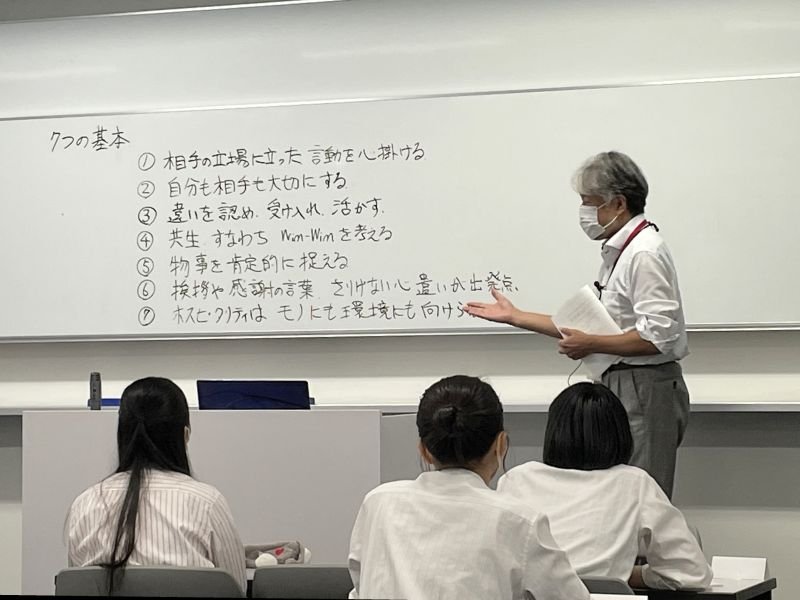 7つの基本
① 相手の立場に立った言動を心掛ける
② 自分も相手も大切にする
③ 違いを認め、受け入れ、活かす
④ 共生、すなわち Win-Winを考える
⑤ 物事を肯定的に捉える
⑥ 挨拶や感謝の言葉、さりげない心遣いが出発点、
⑦ ホスピタリティは モノにも環境にも向けら